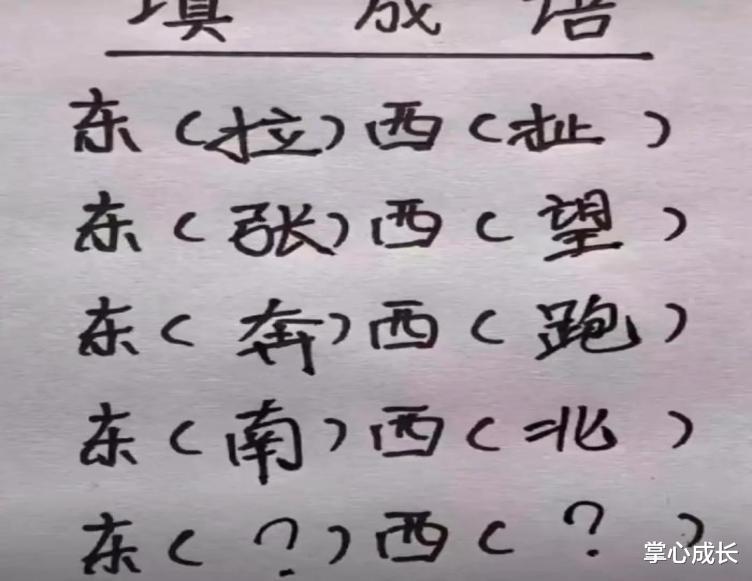 填成语
东（拉）西（扯）
东（张）西（望）
东（奔）西（跑）
东（南）西（北）
东（？）西（？）
掌心成长